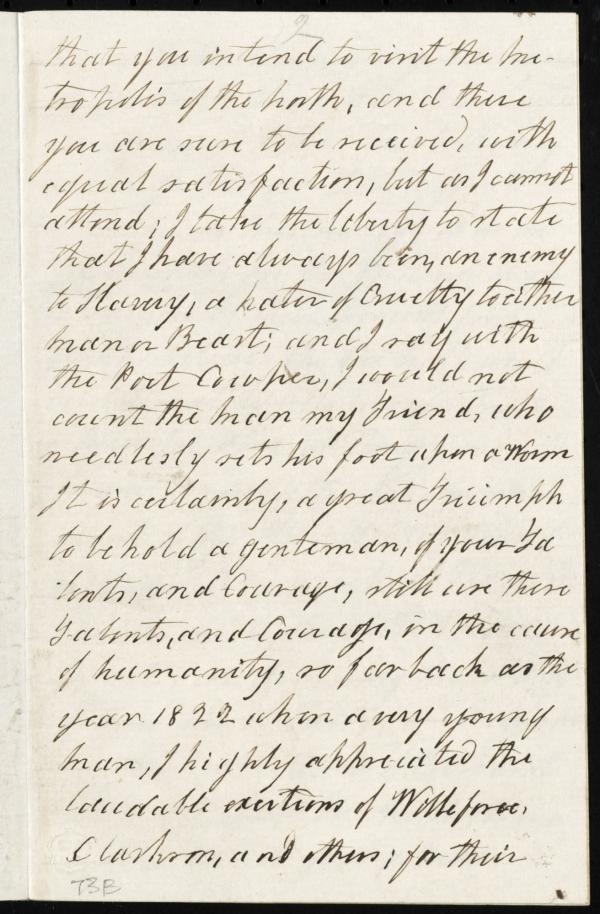 2
that you intend to visit the me-
tropolis of the north, and there
you are sure to be received, with
equal satisfaction, but as I cannot
attend; I take the liberty to state
that I have always been, an enemy
to Slavery, a hater of Cruelty to either
man or Beast; and I say with
the Poet Cowper, I would not
count the man my Friend, who
needlesly sets his foot upon a Worm
It is certainly, a great Triumph
to behold a genteman, of your Ta
lents, and Courage, still use there
Talents, and Courage, in the cause
of humanity, so far back as the
year 1822 when a very young
man, I highly appreciated the
laudable exertions of Willeforce,
Clarkson, and others; for their
T3B